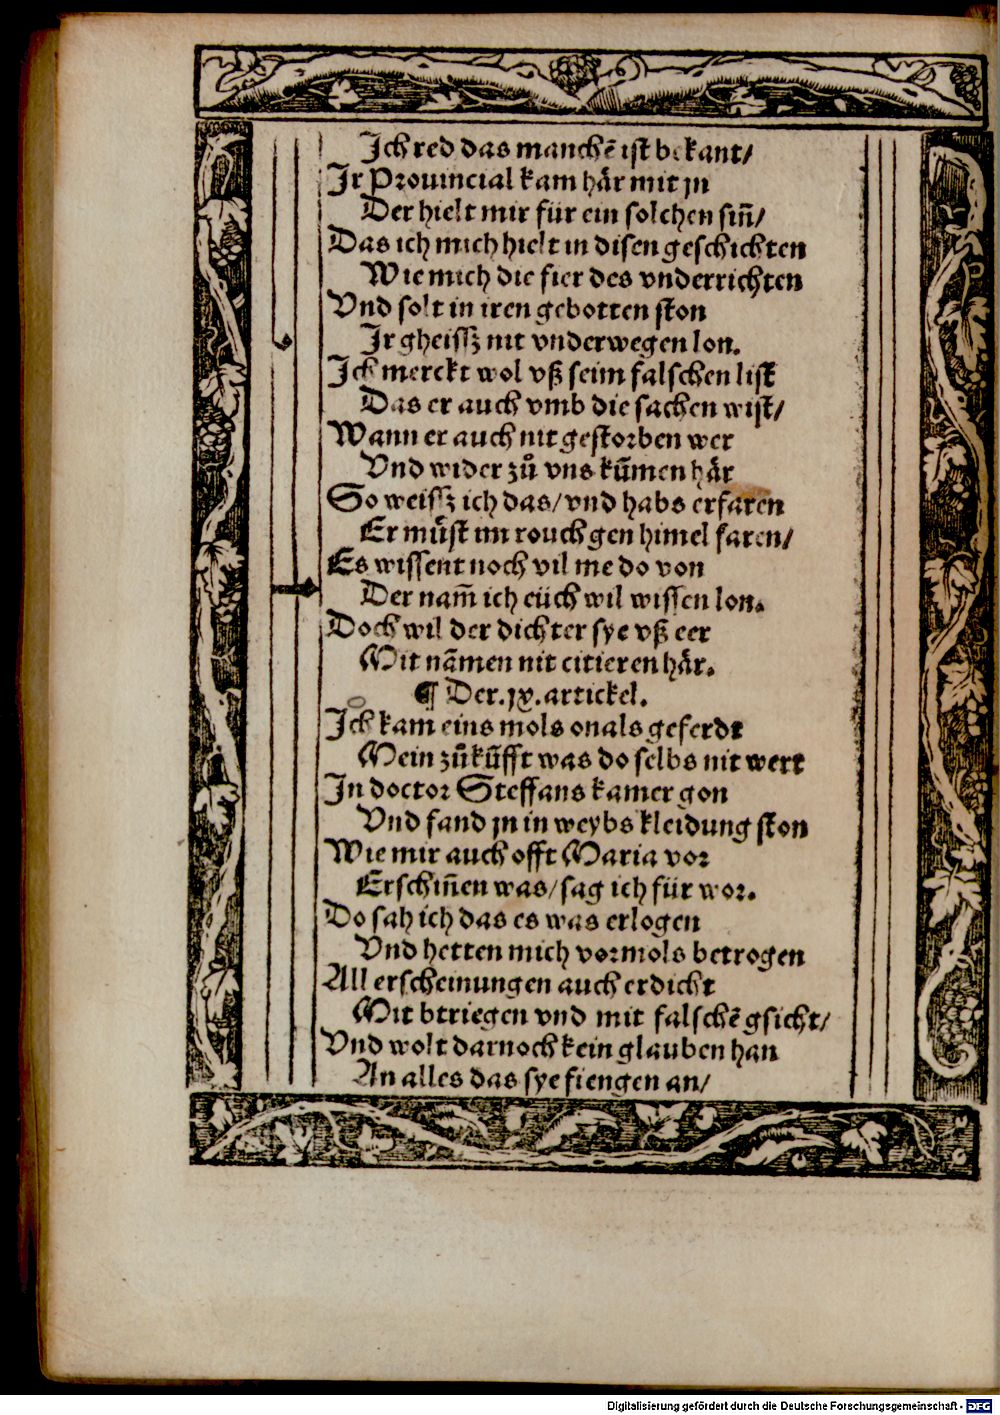 Ich red das manchē ist bekant/
Ir Prouincial kam här mit jn
Der hielt mir für ein solchen siñ/
Das ich mich hielt in disen geschichten
Wie mich die fier des vnderrichten
Vnd solt in iren gebotten ston
Ir gheissz nit vnderwegen lon.
Ich merckt wol vß seim falschen list
Das er auch vmb die sachen wist/
Wann er auch nit gestorben wer
Vnd wider zů vns kūmen här
So weissz ich das/vnd habs erfaren
Er müst im rouch gen himel faren/
Es wissent noch vil me do von
Der nam̄ ich eüch wil wissen lon.
Doch wil der dichter sye vß eer
Mit nāmen nit citieren här.
¶ Der.jx.artickel.
Ich kam eins mols onals geferdt
Mein zůkūfft was do selbs nit wert
In doctor Steffans kamer gon
Vnd fand jn in weybs kleidung ston
Wie mir auch offt Maria vor
Erschiñen was/sag ich für wor.
Do sah ich das es was erlogen
Vnd hetten mich vormols betrogen
All erscheinungen auch erdicht
Mit btriegen vnd mit falschē gsicht/
Vnd wolt darnoch kein glauben han
An alles das sye fiengen an/
Digitalisierung gefördert durch die Deutsche Forschungsgemeinschaft - DFG